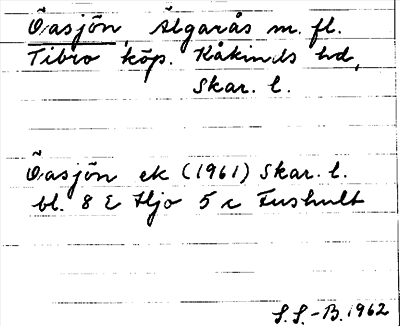 Öasjön, Älgarås m. fl.
Tibro köp. Kåkinds hd,
Skar. l.
Öasjön ek (1961) Skar. l.
bl. 8 E Hjo 5 c Fushult
S.S.-B. 1962